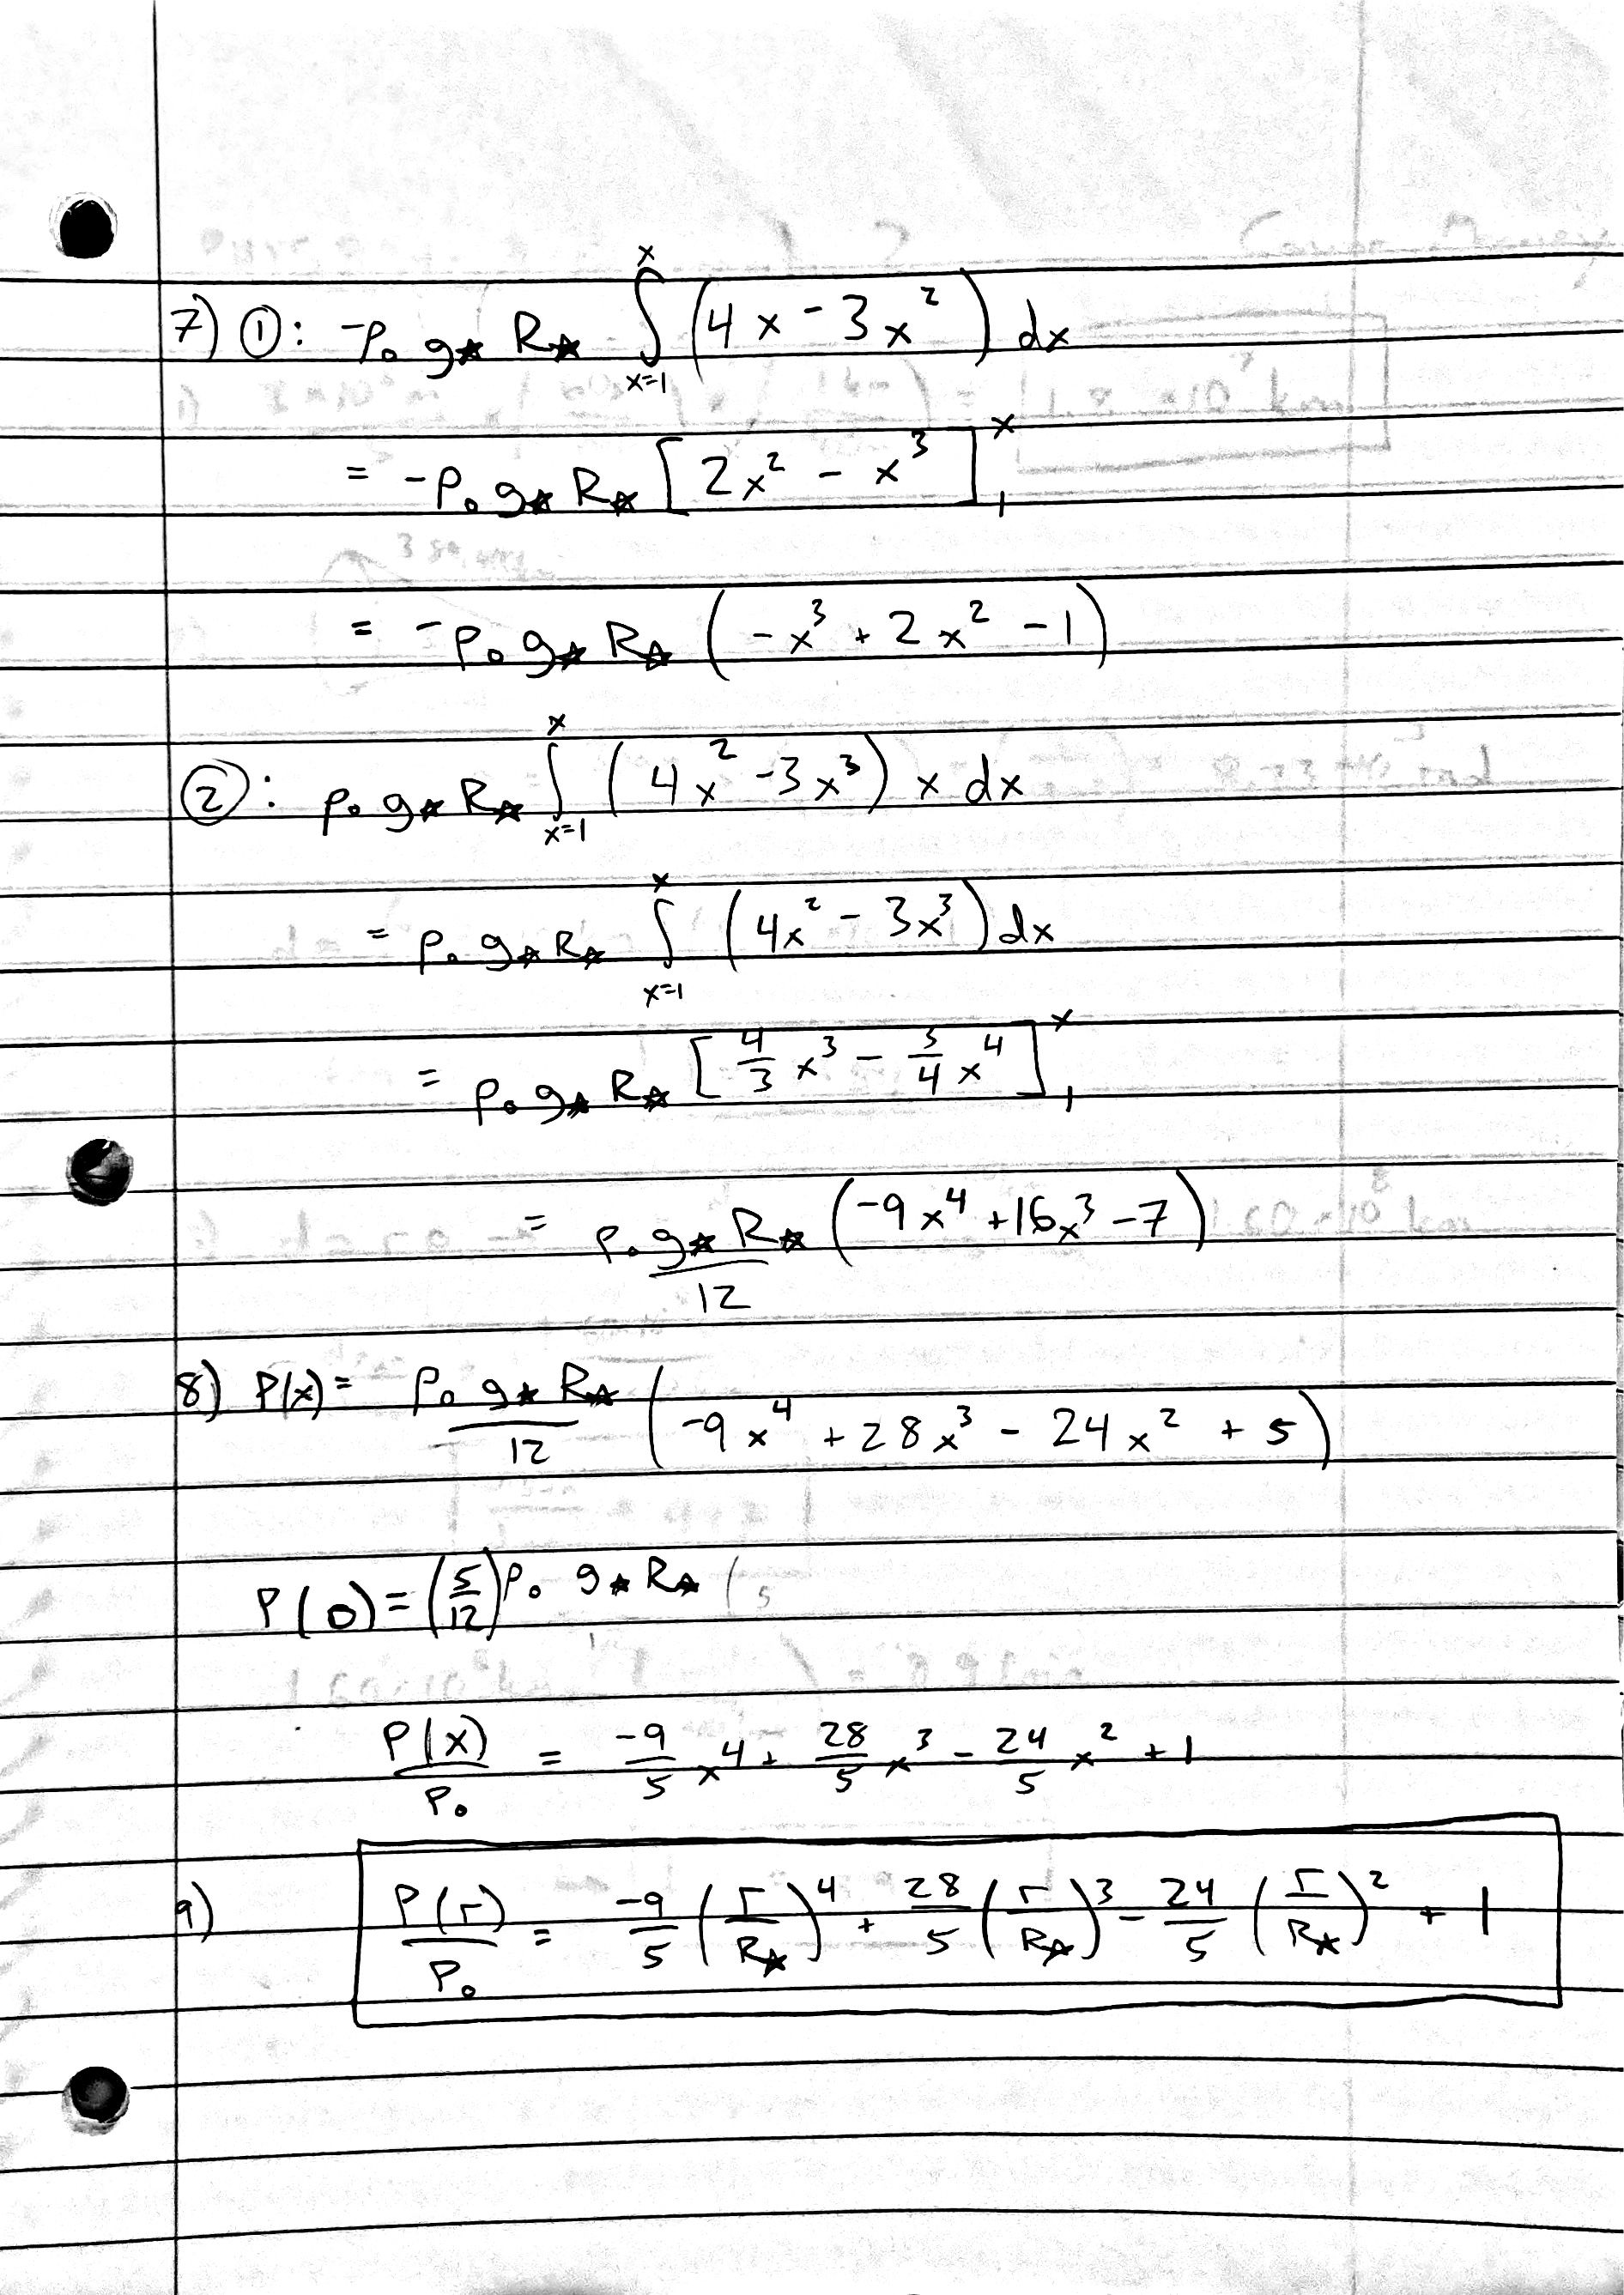 7) ①: -ρ₀ g★ R★ ∫_{x=1}^{x} (4x - 3x²) dx
= -ρ₀ g★ R★ [2x² - x³]₁ˣ
= -ρ₀ g★ R★ (-x³ + 2x² - 1)
②: ρ₀ g★ R★ ∫_{x=1}^{x} (4x² - 3x³) x dx
= ρ₀ g★ R★ ∫_{x=1}^{x} (4x² - 3x³) dx
= ρ₀ g★ R★ [4/3 x³ - 3/4 x⁴]₁ˣ
= ρ₀ g★ R★ / 12 (-9x⁴ + 16x³ - 7)
8) P(x) = ρ₀ g★ R★ / 12 (-9x⁴ + 28x³ - 24x² + 5)
P(0) = (5/12) ρ₀ g★ R★ (5
P(x)/P₀ = -9/5 x⁴ + 28/5 x³ - 24/5 x² + 1
9) P(r)/P₀ = -9/5 (r/R★)⁴ + 28/5 (r/R★)³ - 24/5 (r/R★)² + 1